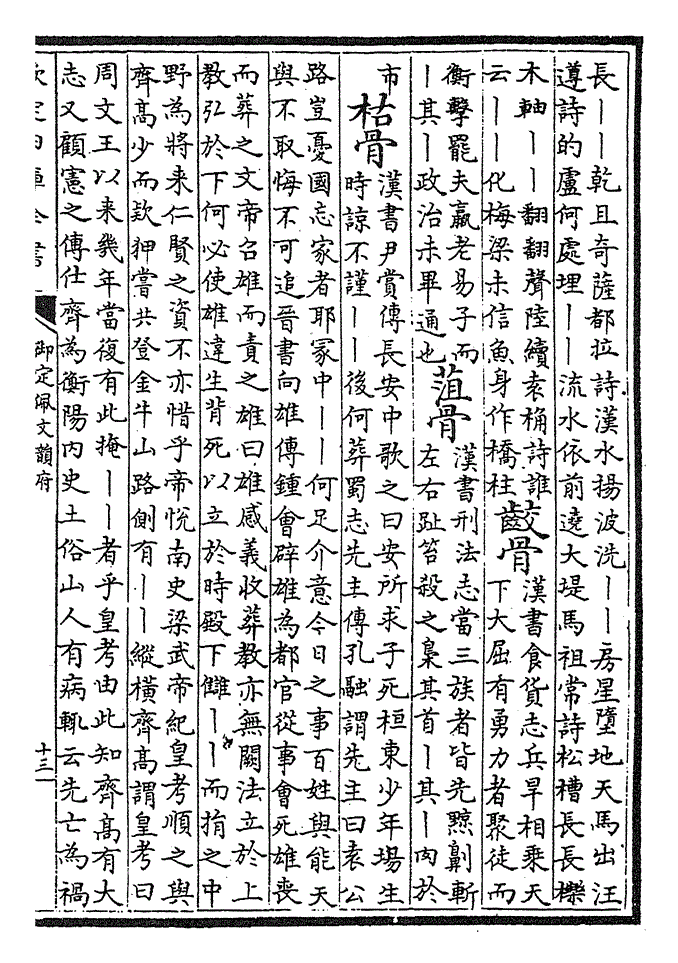 長丨丨乾且奇薩都拉詩漢水揚波洗丨丨房星墮地天馬出汪
遵詩的盧何處埋丨丨流水依前遶大堤馬祖常詩松槽長長櫟
木軸丨丨翻翻聲陸續袁桷詩誰
云丨丨化梅梁未信魚身作橋柱
齩骨
漢書食貨志兵旱相乗天
下大屈有勇力者聚徒而
衡擊罷夫羸老易子而
丨其丨政治未畢通也
菹骨
漢書刑法志當三族者皆先黥劓斬
左右趾笞殺之梟其首丨其丨肉於
市
枯骨
漢書尹賞傳長安中歌之曰安所求子死桓東少年場生
時諒不謹丨丨後何葬蜀志先主傳孔融謂先主曰袁公
路豈憂國志家者耶冢中丨丨何足介意今日之事百姓與能天
與不取悔不可追晉書向雄傳鍾會辟雄為都官從事會死雄喪
而葬之文帝召雄而責之雄曰雄感義收葬教亦無闕法立於上
教弘於下何必使雄違生背死以立於時殿下讎丨丨而捐之中
野為將来仁賢之資不亦惜乎帝悅南史梁武帝紀皇考順之與
齊髙少而欵狎嘗共登金牛山路側有丨丨縱橫齊髙謂皇考曰
周文王以来幾年當復有此掩丨丨者乎皇考由此知齊髙有大
志又顧憲之傳仕齊為衡陽内史土俗山人有病輒云先亡為禍
欽定四庫全書
御定佩文韻府
十三